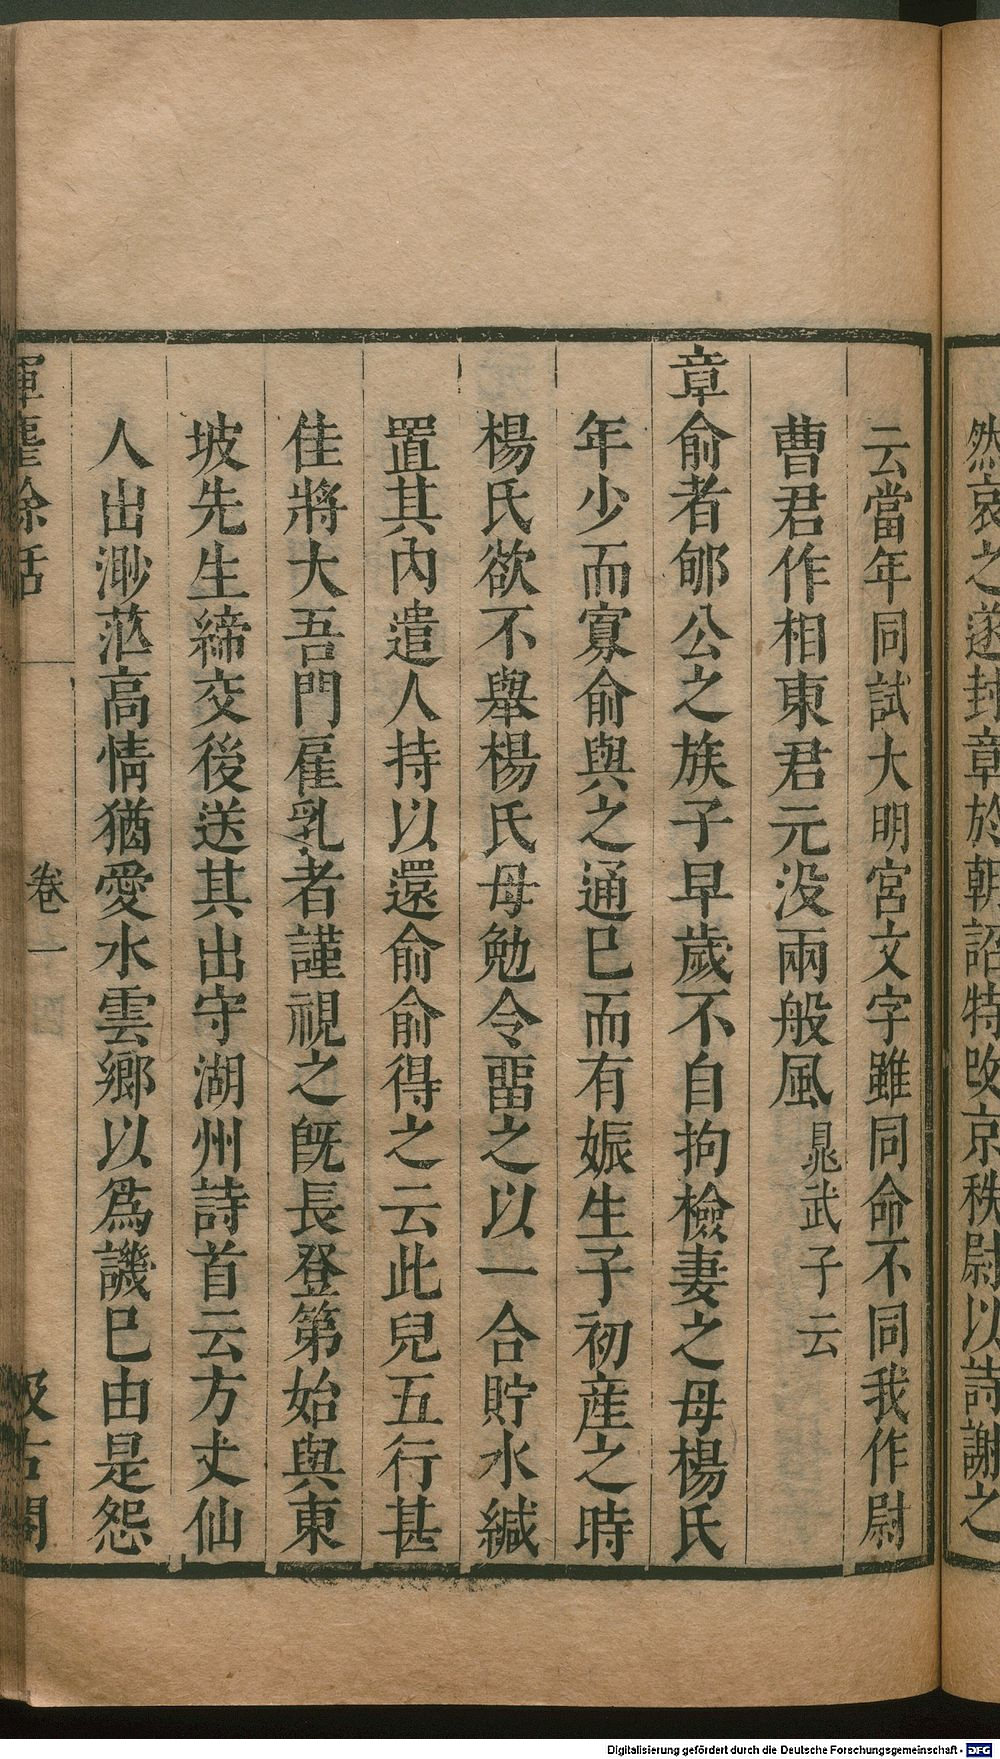 然哀之遂封章於朝詔特改京秩尉以詩謝之
云當年同試大明宮文字雖同命不同我作尉
曹君作相東君元没兩般風晁武子云
章俞者郇公之族子早歲不自拘檢妻之母楊氏
年少而寡俞與之通已而有娠生子初產之時
楊氏欲不舉楊氏母勉令畱之以一合貯水緘
置其內遣人持以還俞俞得之云此兒五行甚
佳將大吾門雇乳者謹視之旣長登第始與東
坡先生締交後送其出守湖州詩首云方丈仙
人出渺茫高情猶愛水雲鄉以爲譏巳由是怨
揮麈餘話 卷一 汲古閣
Digitalisierung gefördert durch die Deutsche Forschungsgemeinschaft - DFG